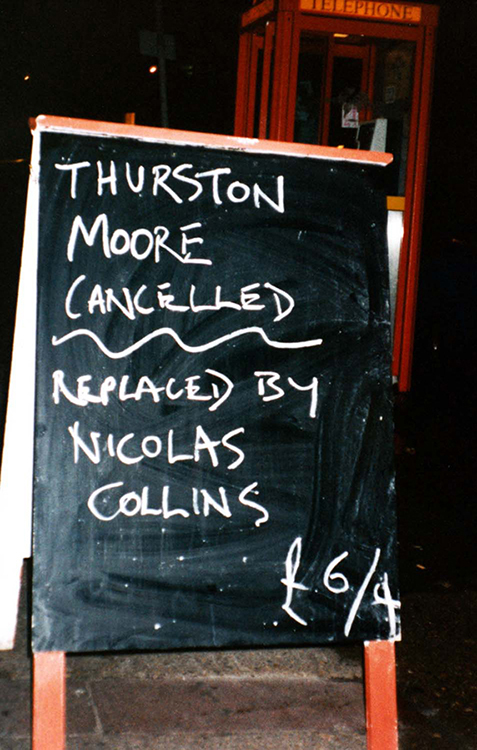 TELEPHONE
THURSTON
MOORE
CANCELLED
REPLACED BY
NICOLAS
COLLINS
£6/4